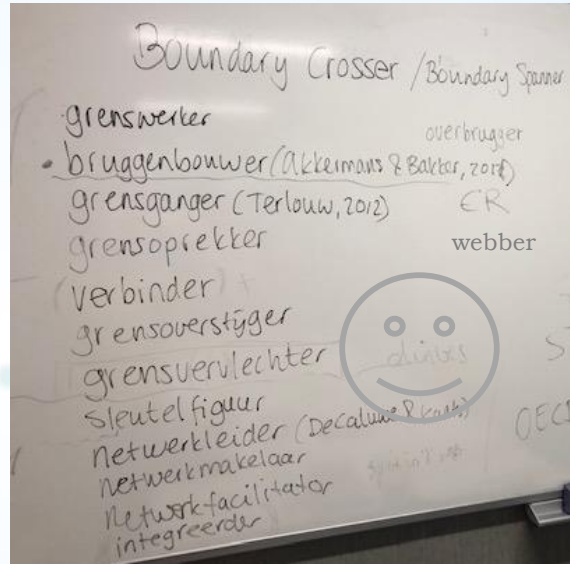 Boundary Crosser / Boundary Spanner
grenswerker
overbrugger
bruggenbouwer (Akkermans & Bakker,
grensganger (Terlouw, 2012)
ER
grensoprekker
webber
(verbinder)
grensoverstijger
grensvervlechter
sleutelfiguur
netwerkleider (Decaluwe &
netwerkmakelaar
netwerkfacilitator
integreerder